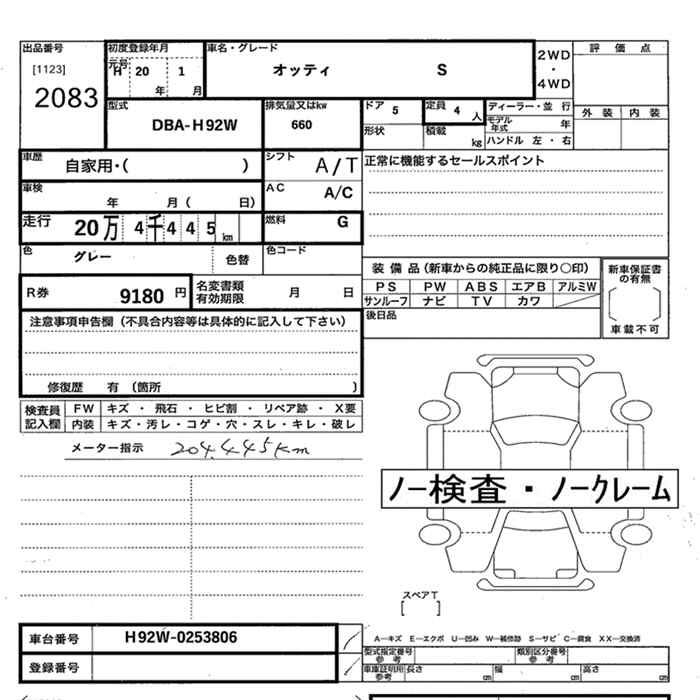 出品番号 初度登録年月 車名・グレード 2WD・4WD 評価点
[1123] 元号 H 20 1 オッティ S
2083 年 月
型式 排気量又はkw ドア 5 定員 4 人 ディーラー・並行 外装 内装
DBA-H92W 660 形状 積載 kg モデル年式 年
ハンドル 左・右
車歴 自家用・( ) シフト A/T 正常に機能するセールスポイント
車検 年 月( 日) AC A/C
走行 20万 4千 4 4 5 km 燃料 G
色 グレー 色替 色コード
装備品(新車からの純正品に限り○印) 新車保証書の有無
R券 9180 円 名変書類有効期限 月 日 PS PW ABS エアB アルミW
サンルーフ ナビ TV カワ
車載不可
注意事項申告欄(不具合内容等は具体的に記入して下さい) 後日品
修復歴 有(箇所 )
検査員記入欄 FW キズ・飛石・ヒビ割・リペア跡・X要
内装 キズ・汚レ・コゲ・穴・スレ・キレ・破レ
メーター指示 204,445km
ノー検査・ノークレーム
スペアT
[ ]
車台番号 H92W-0253806 A―キズ E―エクボ U―凹み W―補修跡 S―サビ C―腐食 XX―交換済
型式指定番号 参考 類別区分番号 参考
登録番号 車庫証明用参考 長さ cm 幅 cm 高さ cm